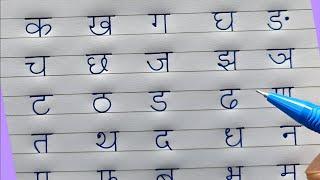 क ख ग घ ङ
च छ ज झ ञ
ट ठ ड ढ ण
त थ द ध न
प फ ब भ म